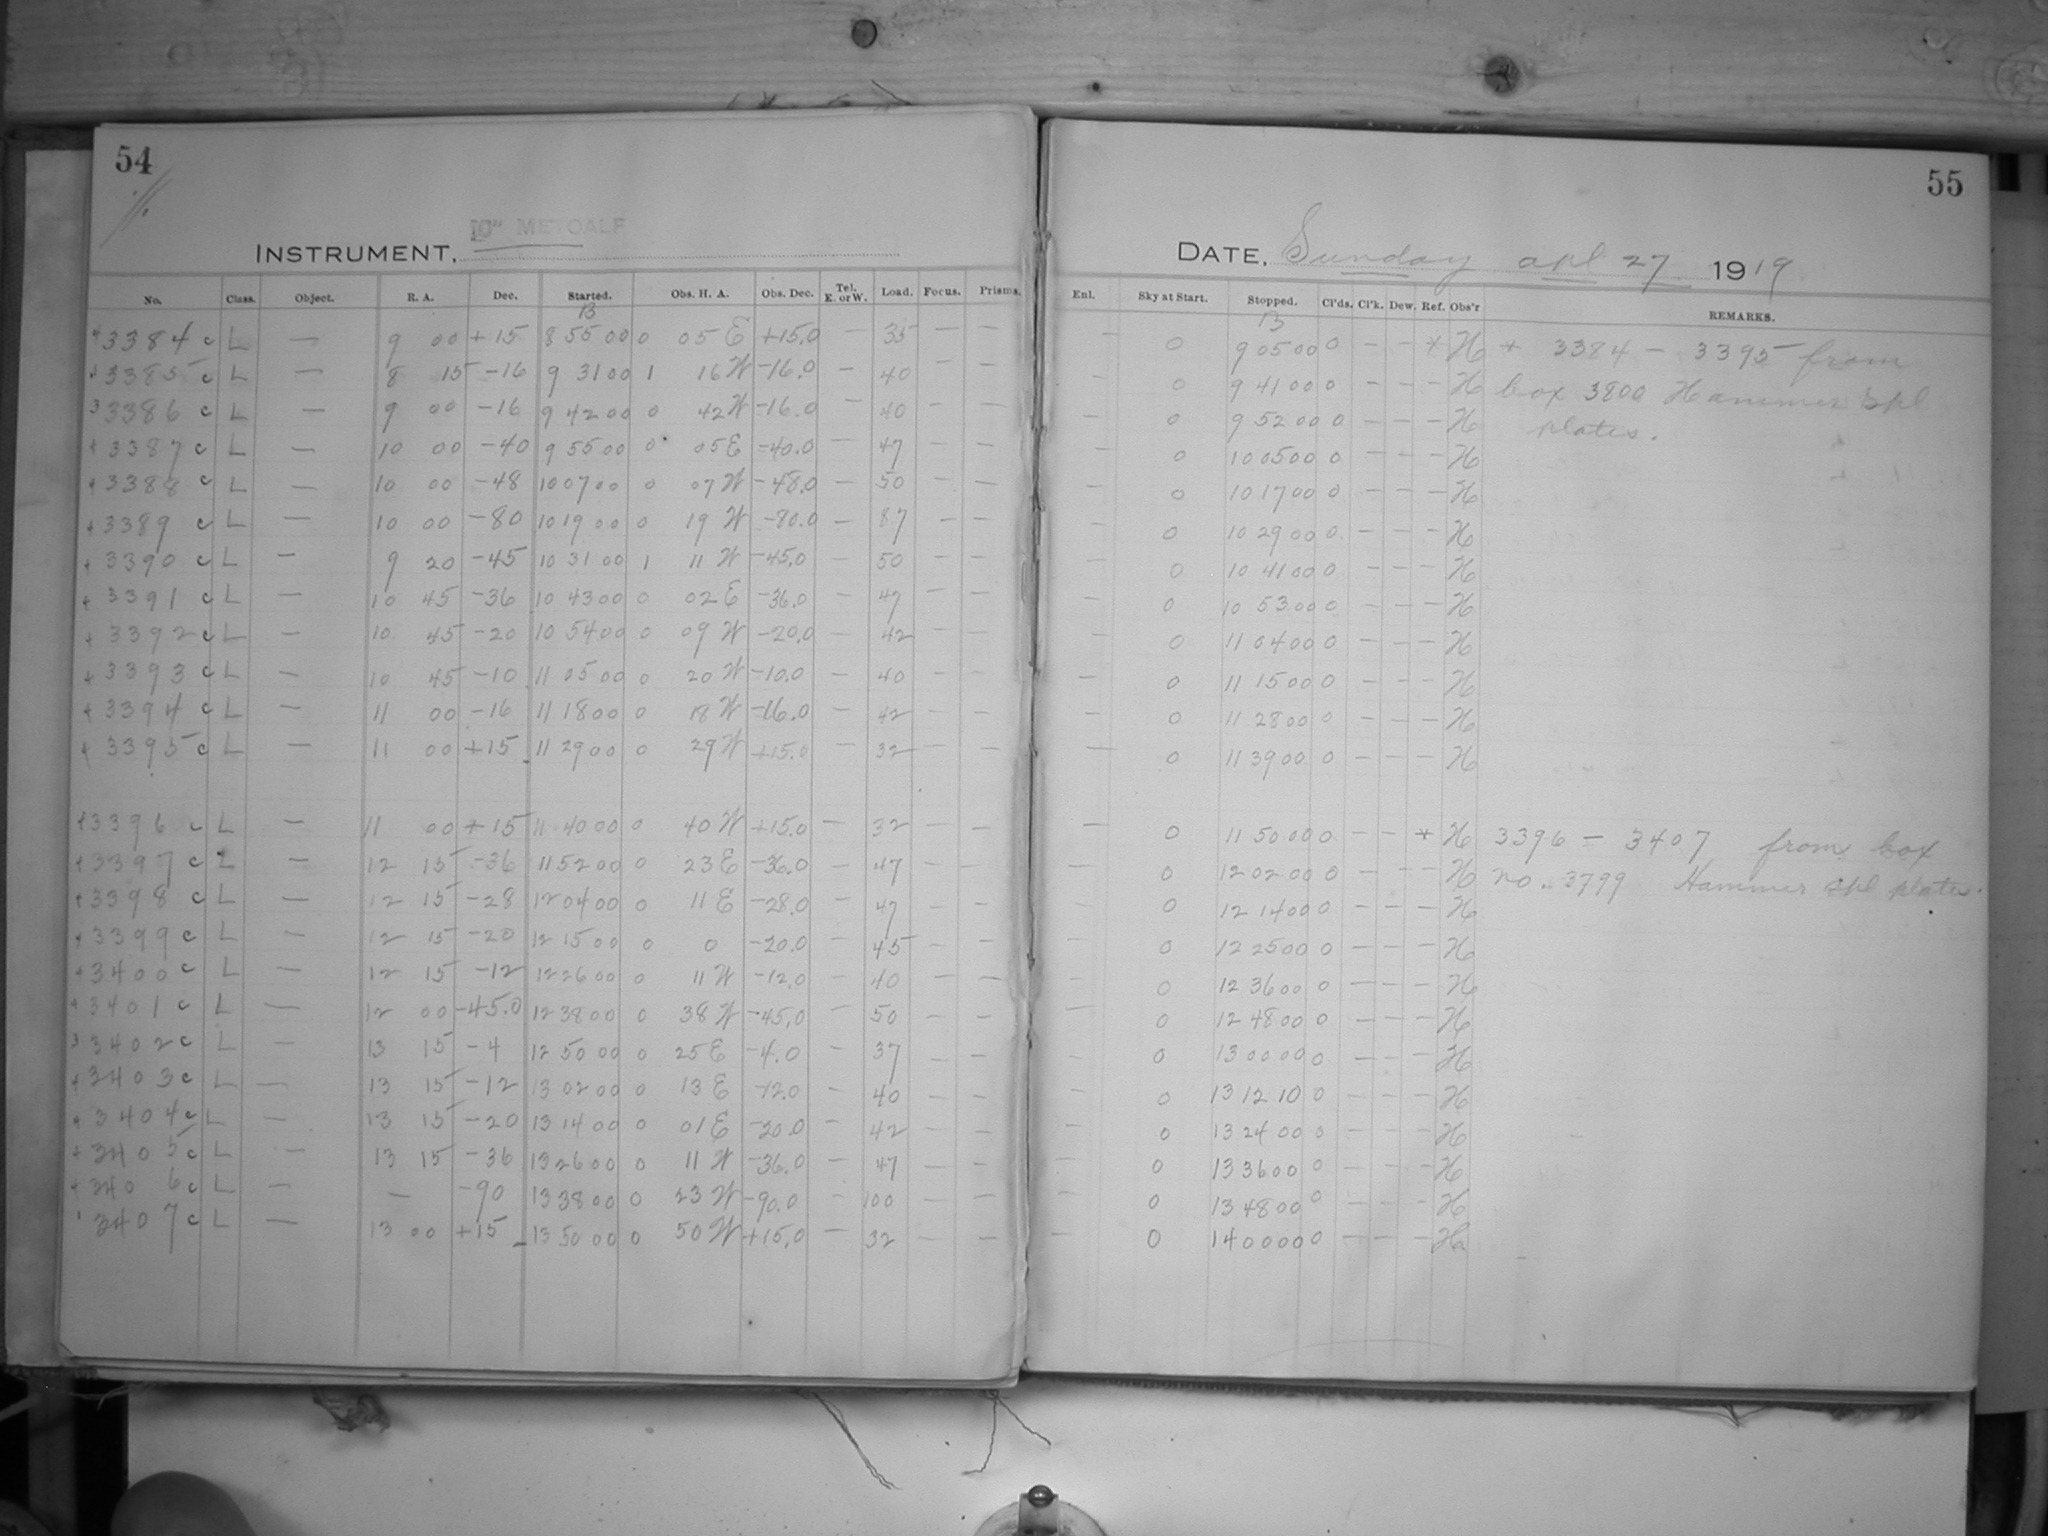 54
10" METCALF
INSTRUMENT,
No. Class. Object. R. A. Dec. Started. Obs. H. A. Obs. Dec. Tel. E. or W. Load. Focus. Prisms.
13
3384 c L — 9 00 +15 8 55 00 0 05 E +15.0 — 35 — —
3385 c L — 8 15 -16 9 31 00 1 16 W -16.0 — 40 — —
3386 c L — 9 00 -16 9 42 00 0 42 W -16.0 — 40 — —
3387 c L — 10 00 -40 9 55 00 0 05 E -40.0 — 47 — —
3388 c L — 10 00 -48 10 07 00 0 07 W -48.0 — 50 — —
3389 c L — 10 00 -80 10 19 00 0 19 W -80.0 — 87 — —
3390 c L — 9 20 -45 10 31 00 1 11 W -45.0 — 50 — —
3391 c L — 10 45 -36 10 43 00 0 02 E -36.0 — 47 — —
3392 c L — 10 45 -20 10 54 00 0 09 W -20.0 — 42 — —
3393 c L — 10 45 -10 11 05 00 0 20 W -10.0 — 40 — —
3394 c L — 11 00 -16 11 18 00 0 18 W -16.0 — 42 — —
3395 c L — 11 00 +15 11 29 00 0 29 W +15.0 — 32 — —
3396 c L — 11 00 +15 11 40 00 0 40 W +15.0 — 32 — —
3397 c L — 12 15 -36 11 52 00 0 23 E -36.0 — 47 — —
3398 c L — 12 15 -28 12 04 00 0 11 E -28.0 — 47 — —
3399 c L — 12 15 -20 12 15 00 0 0 -20.0 — 45 — —
3400 c L — 12 15 -12 12 26 00 0 11 W -12.0 — 40 — —
3401 c L — 12 00 -45.0 12 38 00 0 38 W -45.0 — 50 — —
3402 c L — 13 15 -4 12 50 00 0 25 E -4.0 — 37 — —
3403 c L — 13 15 -12 13 02 00 0 13 E -12.0 — 40 — —
3404 c L — 13 15 -20 13 14 00 0 01 E -20.0 — 42 — —
3405 c L — 13 15 -36 13 26 00 0 11 W -36.0 — 47 — —
3406 c L — — -90 13 38 00 0 23 W -90.0 — 100 — —
3407 c L — 13 00 +15 13 50 00 0 50 W +15.0 — 32 — —
55
DATE, Sunday apl 27 1919
Enl. Sky at Start. Stopped. Cl'ds. Cl'k. Dew. Ref. Obs'r REMARKS.
13
— 0 9 05 00 0 — — * H * 3384 — 3395 from
— 0 9 41 00 0 — — — H box 3800 Hammer Spl
— 0 9 52 00 0 — — — H plates.
— 0 10 05 00 0 — — — H
— 0 10 17 00 0 — — — H
— 0 10 29 00 0 — — — H
— 0 10 41 00 0 — — — H
— 0 10 53 00 0 — — — H
— 0 11 04 00 0 — — — H
— 0 11 15 00 0 — — — H
— 0 11 28 00 0 — — — H
— 0 11 39 00 0 — — — H
— 0 11 50 00 0 — — * H 3396 — 3407 from box
— 0 12 02 00 0 — — — H no. 3799 Hammer Spl plates.
— 0 12 14 00 0 — — — H
— 0 12 25 00 0 — — — H
— 0 12 36 00 0 — — — H
— 0 12 48 00 0 — — — H
— 0 13 00 00 0 — — — H
— 0 13 12 10 0 — — — H
— 0 13 24 00 0 — — — H
— 0 13 36 00 0 — — — H
— 0 13 48 00 0 — — — H
— 0 14 00 00 0 — — — Ha